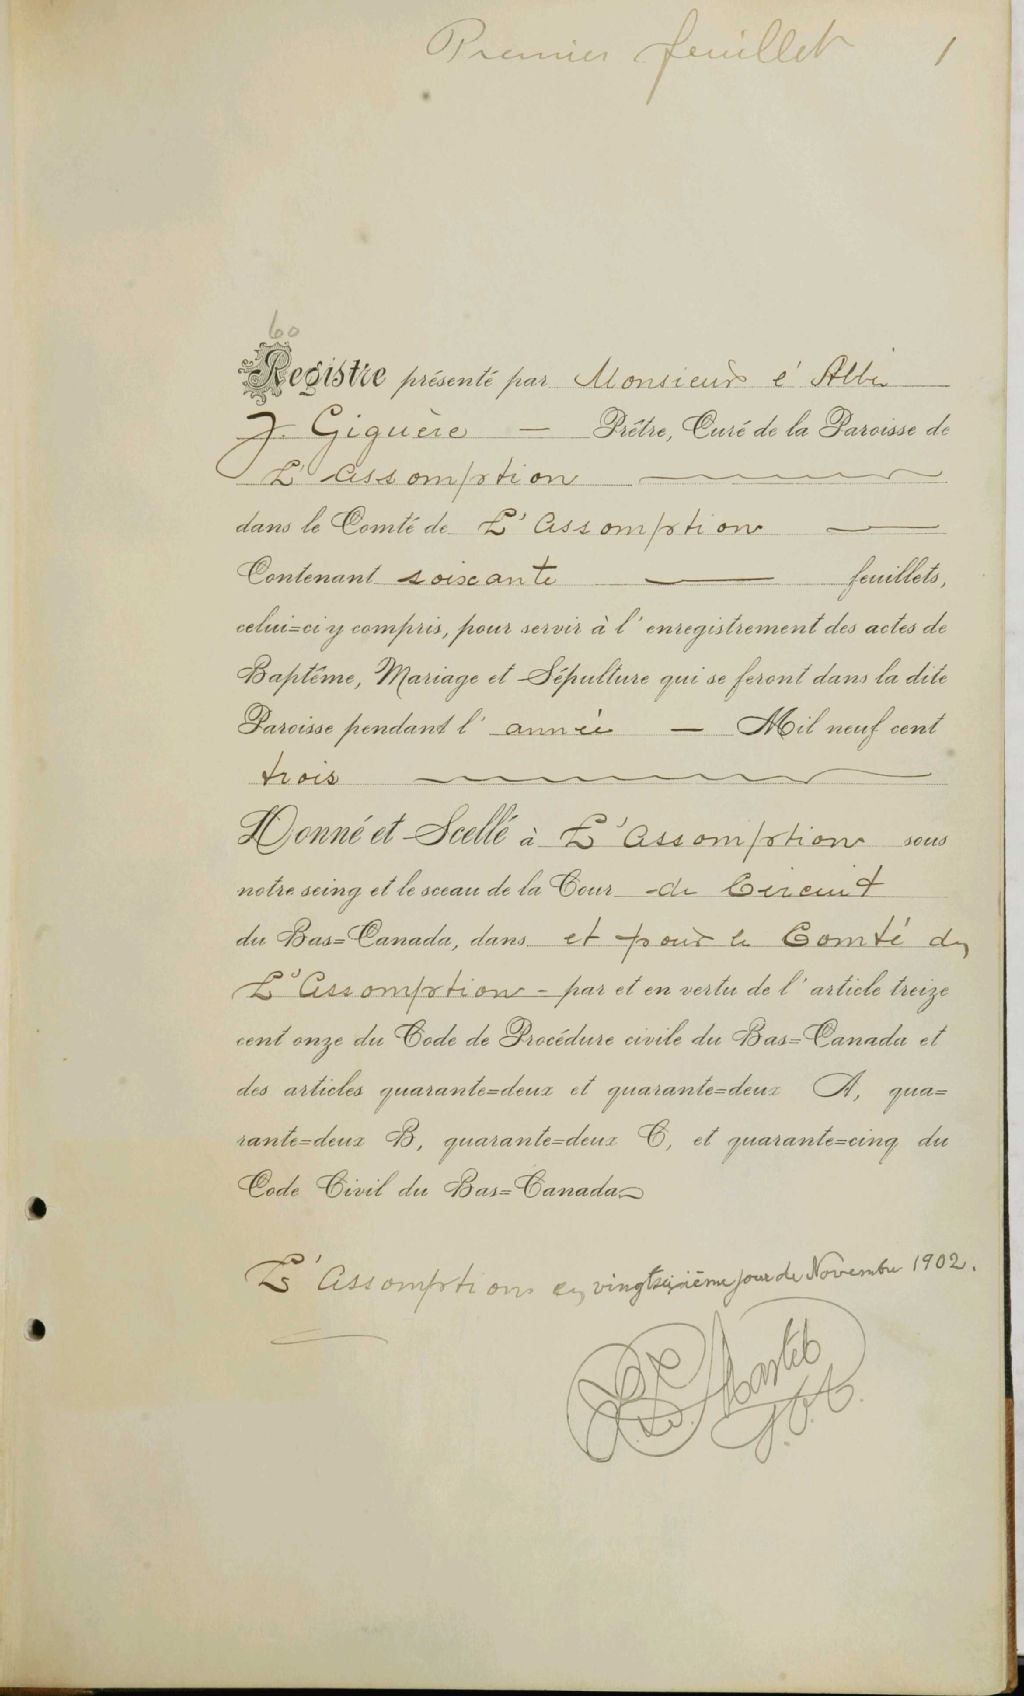 Premier feuillet 1
60
Registre présenté par Monsieur l'Abbé
J. Giguère — Prêtre, Curé de la Paroisse de
L'Assomption
dans le Comté de L'Assomption
Contenant soixante feuillets,
celui=ci y compris, pour servir à l'enregistrement des actes de
Baptême, Mariage et Sépulture qui se feront dans la dite
Paroisse pendant l'année — Mil neuf cent
trois
Donné et Scellé à L'Assomption sous
notre seing et le sceau de la Cour de Circuit
du Bas=Canada, dans et pour le Comté de
L'Assomption - par et en vertu de l'article treize
cent onze du Code de Procédure civile du Bas=Canada et
des articles quarante=deux et quarante=deux A, qua=
rante=deux B, quarante=deux C, et quarante=cinq du
Code Civil du Bas=Canada.
L'Assomption ce vingtsixième jour de Novembre 1902.
Martel